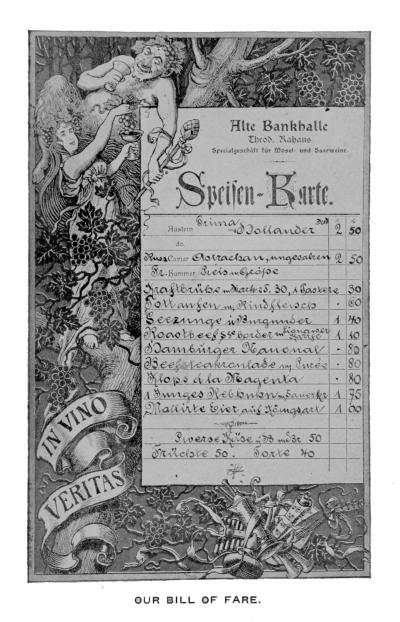 Alte Bankhalle
Theod. Rahaus
Specialgeschäft für Mosel- und Saarweine.
Speisen-Karte.
Austern Prima Holländer 2 50
do.
Russ Caviar Astrachan, ungesalzen 2 50
Fr. Hummer Preis n. Grösse
Kraftbrühe m. Mark 25. 30, 1 Pastete 30
m. Rindfleisch - 60
Seezunge i. Burgunder 1 40
Roastbeef 1 10
Hamburger National - 80
Beefsteakronlade m. Purée - 80
Klops á la Magenta - 80
1 Junges Rebhuhn m. Sauerkr 1 75
Eier auf Königsart 1 60
Diverse Käse 50
Früchte 50. Torte 40
IN VINO
VERITAS
OUR BILL OF FARE.